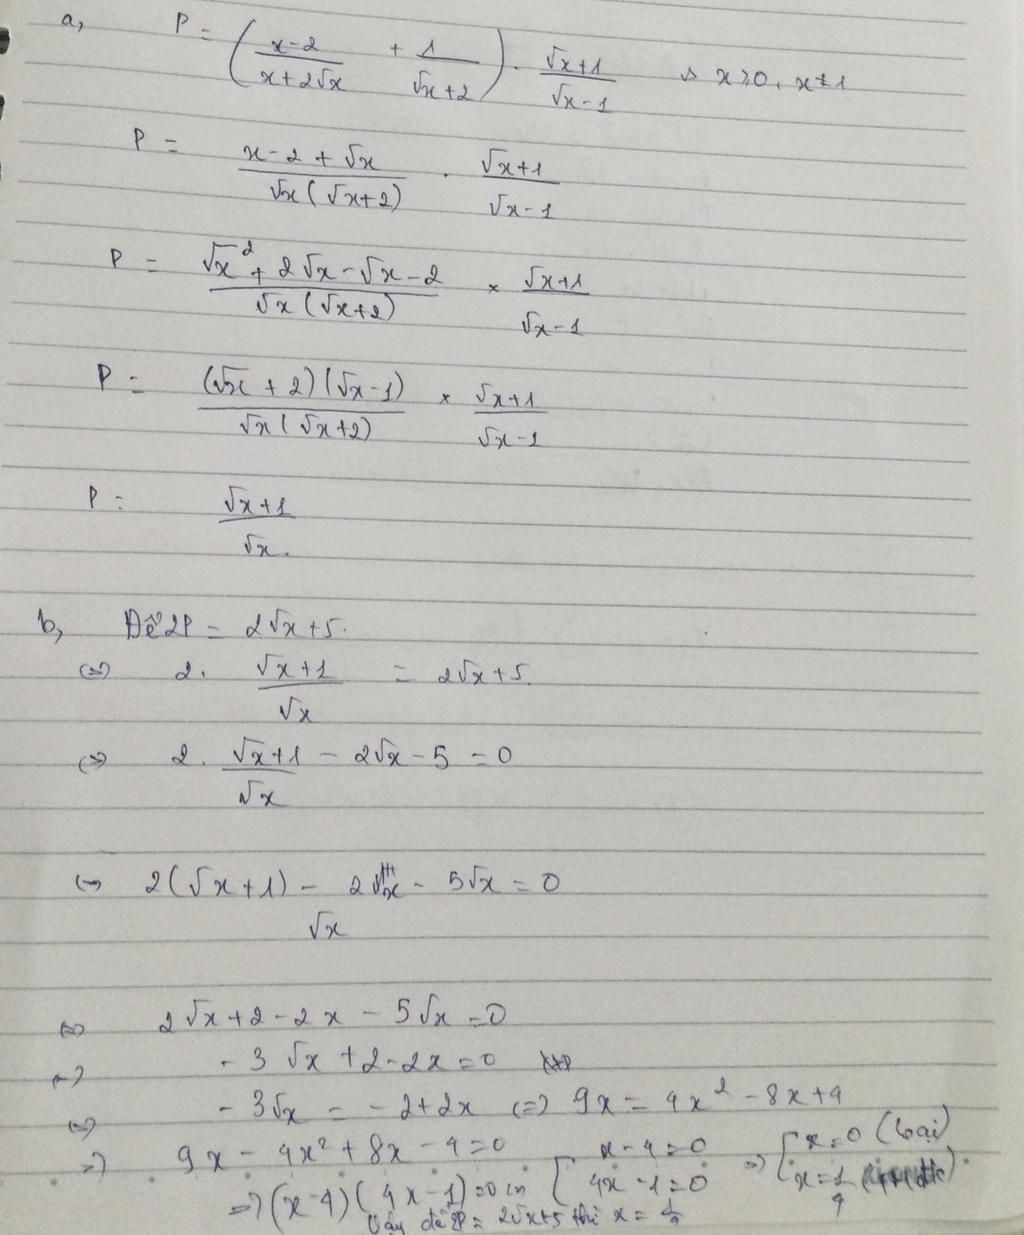 a, P = ( (x-2)/(x+2√x) + 1/(√x+2) ) . (√x+1)/(√x-1) x>0, x≠1
P = (x-2+√x)/(√x(√x+2)) . (√x+1)/(√x-1)
P = (√x²+2√x-√x-2)/(√x(√x+2)) × (√x+1)/(√x-1)
P = ((√x+2)(√x-1))/(√x(√x+2)) × (√x+1)/(√x-1)
P = (√x+1)/√x.
b, Để 2P = 2√x+5.
<=> 2. (√x+1)/√x = 2√x+5.
<=> 2. (√x+1)/√x - 2√x-5 = 0
<=> 2(√x+1) - 2x - 5√x = 0
√x
<=> 2√x+2-2x-5√x=0
<=> -3√x+2-2x=0
<=> -3√x = -2+2x <=> 9x = 4x²-8x+4
=> 9x-4x²+8x-4=0
=> (x-4)(4x-1)=0 [ x-4=0 4x-1=0 => [ x=0 (loại) x=1/4
Vậy để 2P = 2√x+5 thì x = 1/4